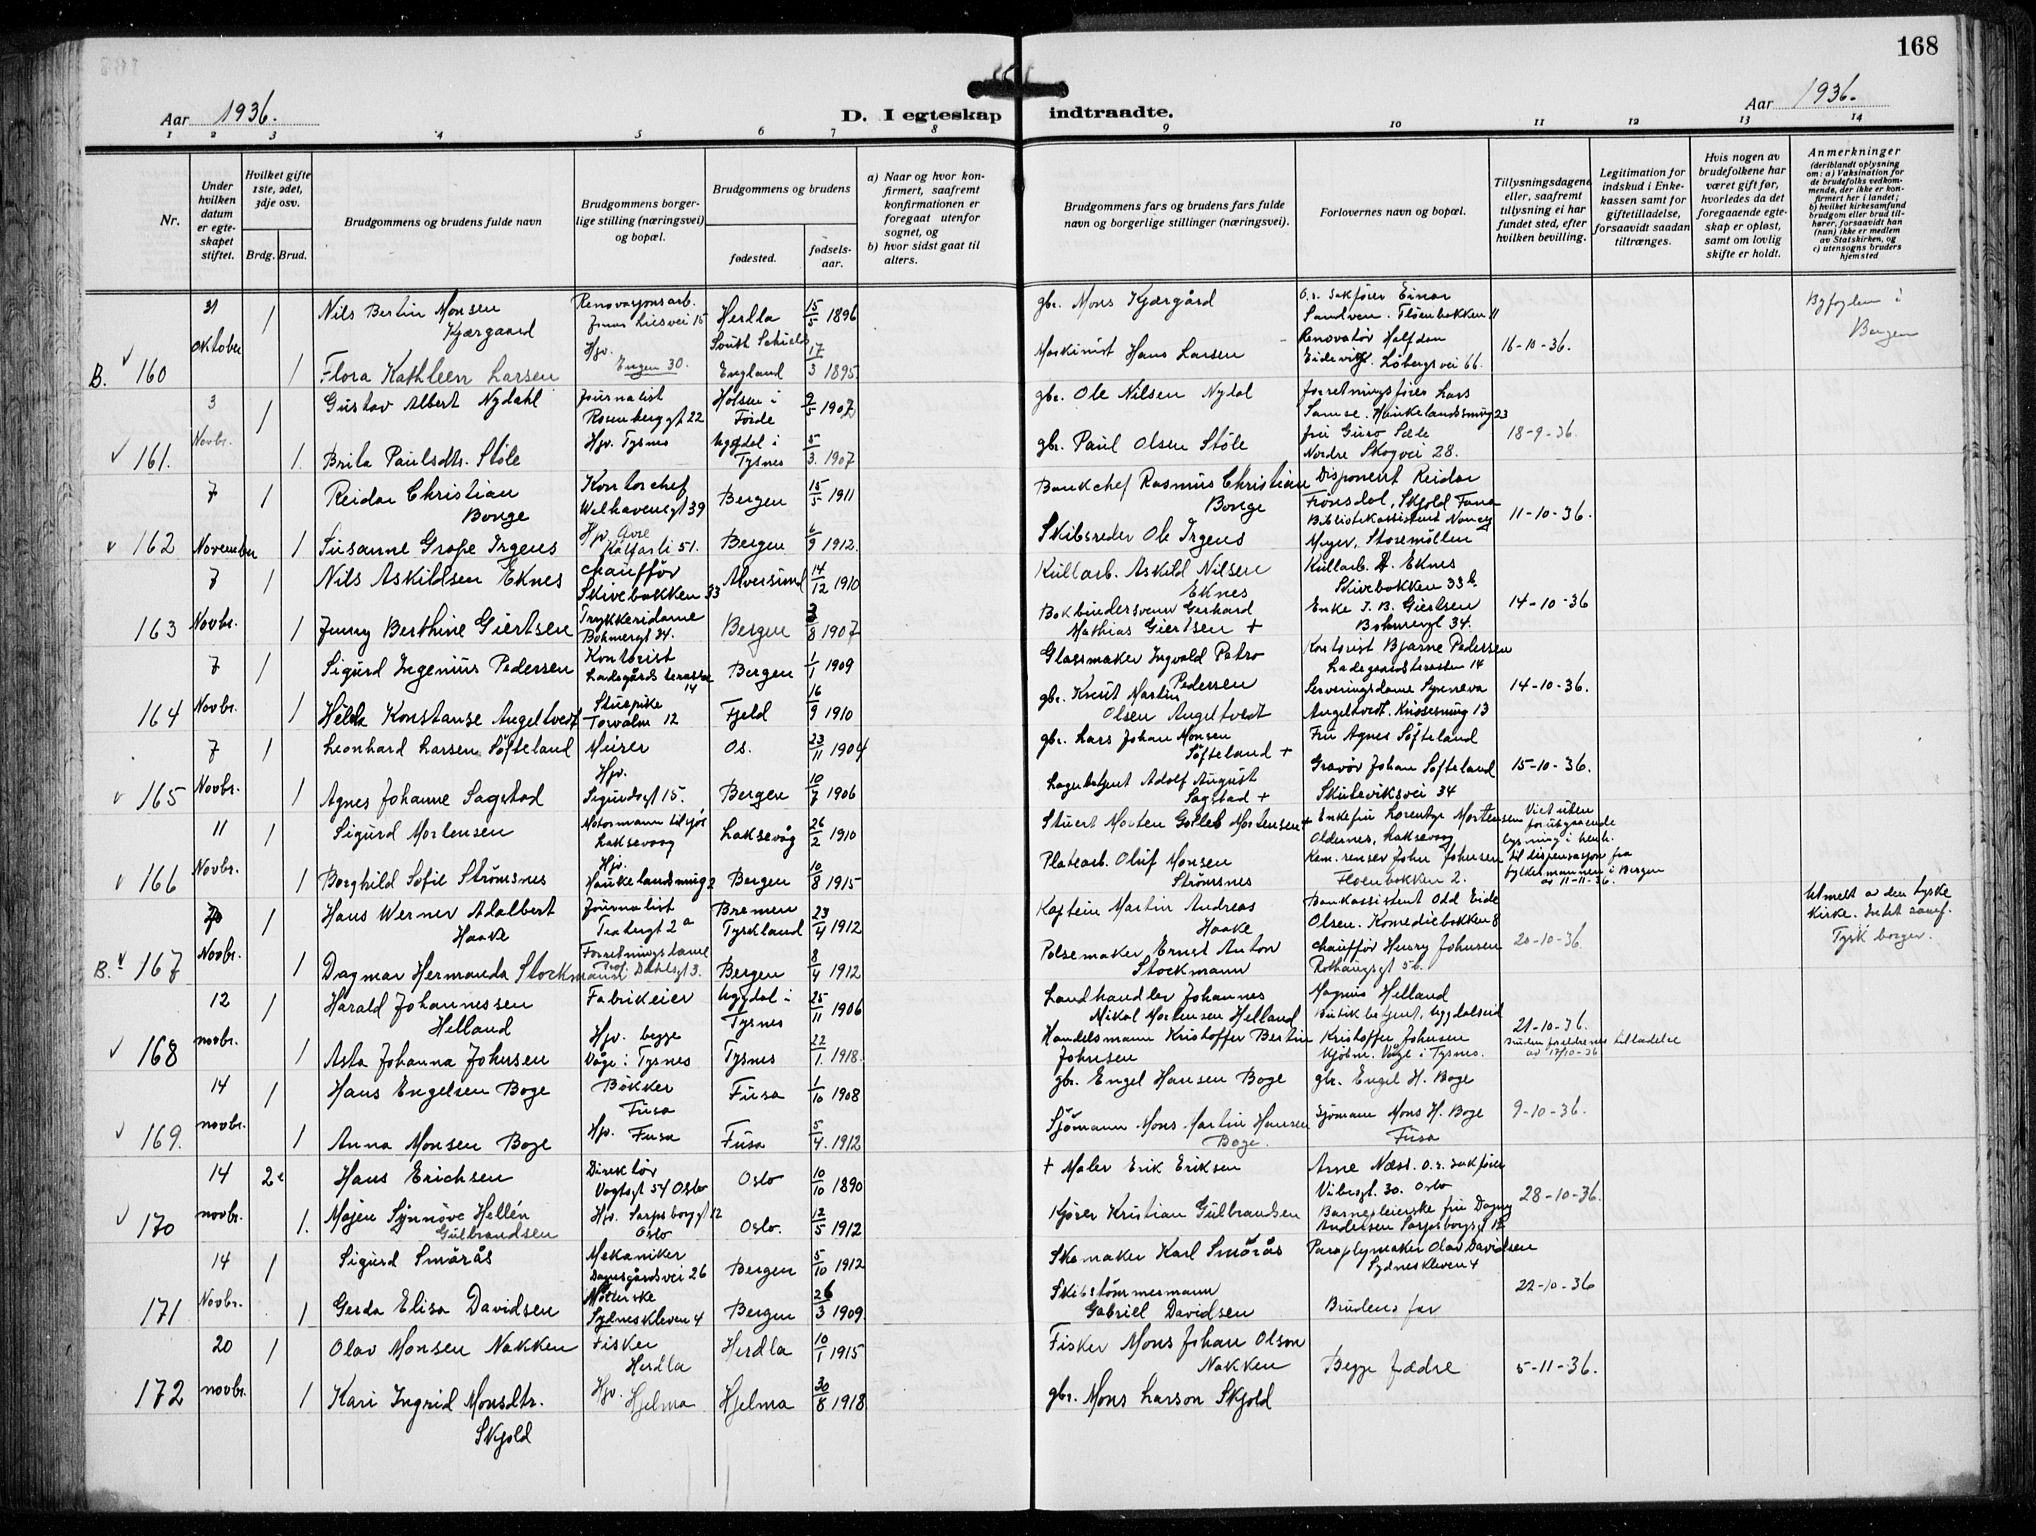 168
Aar 1936.
D. I egteskap indtraadte.
Aar 1936.
1 2 3 4 5 6 7 8 9 10 11 12 13 14
Nr.
Under hvilken datum er egteskapet stiftet.
Hvilket gifte 1ste, 2det, 3dje osv.
Brdg. Brud.
Brudgommens og brudens fulde navn
Brudgommens borgerlige stilling (næringsvei) og bopæl.
Brudgommens og brudens
fødested.
fødselsaar.
a) Naar og hvor konfirmert, saafremt konfirmationen er foregaat utenfor sognet, og
b) hvor sidst gaat til alters.
Brudgommens fars og brudens fars fulde navn og borgerlige stillinger (næringsvei).
Forlovernes navn og bopæl.
Tillysningsdagene eller, saafremt tillysning ei har fundet sted, efter hvilken bevilling.
Legitimation for indskud i Enkekassen samt for giftetilladelse, forsaavidt saadan tiltrænges.
Hvis nogen av brudefolkene har været gift før, hvorledes da det foregaaende egteskap er opløst, samt om lovlig skifte er holdt.
Anmerkninger
(deriblandt oplysning om: a) Vaksination for de brudefolks vedkommende, der ikke er konfirmert her i landet; b) hvilket kirkesamfund brudgom eller brud tilhører, forsaavidt han (hun) ikke er medlem av Statskirken, og c) utensogns bruders hjemsted
B. 160 31 oktober 1 Nils Bertin Monsen Kjærgaard Renovasjonsarb. Jonas Liesvei 15 Herdla 15/5 1896 gbr. Mons Kjærgård O.r. sakfører Einar Sandven. Fløenbakken 11 Byfogden i Bergen
1 Flora Kathleen Larsen Hjv. Engen 30. South Schields England 17/3 1895 Maskinist Hans Larsen Renovatør Halfdan Eidevik. Løbergsvei 66. 16-10-36.
161. 3 Novbr. 1 Gustav Albert Nydahl Journalist Rosenberggt 22 Holsen i Førde 9/5 1907 gbr. Ole Nilsen Nydal forretningsfører Lars Samse. Haukelandssmug 23
1. Brita Paulsdtr. Støle Hjv. Tysnes Uggdal i Tysnes 5/3. 1907 gbr. Paul Olsen Støle fru Guro Sæle Nordre Skogvei 28. 18-9-36.
162 7 November 1 Reidar Christian Bonge Kontorchef Welhavensgt 39 Bergen 15/5 1911 Bankchef Rasmus Christian Bonge Disponent Reidar Frønsdal, Skjold Fana
1 Susanne Grape Irgens Hjv. Øvre Kalfarli 51. Bergen 6/9 1912. Skibsreder Ole Irgens Bibliotekassistent Nancy Meyer, Storemøllen 11-10-36.
163 7 Novbr. 1 Nils Askildsen Eknes chauffør Skivebakken 33 Alversund 14/12 1910 Kullarb. Askild Nilsen Eknes Kullarb. A. Eknes Skivebakken 33b.
1 Jenny Berthine Giertsen Trykkeridame Bøhmergt 34. Bergen 3/8 1907 Bokbindersvenn Gerhard Mathias Giertsen + Enke J. B. Giertsen Bøhmergt 34. 14-10-36
164 7 Novbr. 1 Sigurd Ingenius Pedersen Kontorist Ladegårds terasse 14 Bergen 1/1 1909 Glassmaker Ingvald Petro Pedersen Kontorist Bjarne Pedersen Ladegaardsterassen 14
1 Helda Konstanse Angeltvedt Stuepike Torvalm 12 Fjeld 16/9 1910 gbr. Knut Martin Olsen Angeltvedt Serveringsdame Synneva Angeltvedt. Knøsesmug 13 14-10-36.
165 7 Novbr. 1 Leonhard Larsen Søfteland Murer Os. 23/11 1904 gbr. Lars Johan Monsen Søfteland + Fru Agnes Søfteland
1 Agnes Johanne Sagstad Hjv. Sigurdsgt 15. Bergen 10/7 1906 Lagerbetjent Adolf August Sagstad + Gravør Johan Søfteland Skuteviksvei 34 15-10-36.
166 11 Novbr. 1 Sigurd Mortensen Motormann tilsjøs Laksevaag Laksevåg 26/2 1910 Stuert Morten Gotleb Mortensen + Enkefru Lorentze Mortensen Oldernes, Laksevaag
1 Borghild Sofie Strømsnes Hjv. Haukelandsmug 2 Bergen 10/8 1915 Platearb. Oluf Monsen Strømsnes Kem. renser John Johnsen Fløenbakken 2. Viet uten forutgaaende lysning i henh. til dispensasjon fra fylkesmannen i Bergen av 11-11-36.
B. 167 Novbr. 1 Hans Werner Adalbert Haake Journalist Teatergt 2a Bremen Tyskland 23/4 1912 Kaptein Martin Andreas Haake Bankassistent Odd Eide Olsen. Komediebakken 8 Utmeldt av den tyske kirke. Intet samf. Tysk borger.
1 Dagmar Hermanda Stockmann Forretningsdame Prof. Dahlsgt 3. Bergen 8/4 1912 Pølsemaker Ernst Anton Stockmann chauffør Henry Johnsen Rothaugsgt 5b. 20-10-36.
168 12 novbr. 1 Harald Johannessen Helland Fabrikeier Uggdal i Tysnes 25/11 1906 Landhandler Johannes Mikal Mortensen Helland Magnus Helland Butikbetjent, Uggdalseid
1 Asta Johanna Johnsen Hjv. begge Våge i Tysnes Tysnes 22/1. 1918. Handelsmann Kristoffer Bertin Johnsen Kristoffer Johnsen Kjøbm. Våge i Tysnes. 21-10-36. Bruden foreldrenes tilladelse av 17/10-36
169. 14 novbr. 1 Hans Engelsen Boge Bøkker Fusa Fusa 1/10 1908 gbr. Engel Hansen Boge gbr. Engel H. Boge
1 Anna Monsen Boge Hjv. Fusa Fusa 5/4. 1912 Sjømann Mons Martin Hansen Boge. Sjømann Mons H. Boge Fusa 9-10-36.
170 14 novbr. 2e Hans Erichsen Direktør Vogtsgt 54 Oslo Oslo 10/10 1890 + Maler Erik Eriksen Arne Næss. O.r. sakfører Vibesgt. 30. Oslo
1. Majen Synnøve Hellén Gulbrandsen Hjv. Sarpsborggt 12 Oslo Oslo. 12/5 1912 Kjører Kristian Gulbrandsen Barnepleierske fru Dagny Andersen Sarpsborgsgt 12 28-10-36.
171 14 Novbr. 1 Sigurd Smørås Mekaniker Damsgårdsvei 26 Bergen 5/10 1912 Skomaker Karl Smørås Paraplymaker Olav Davidsen Sydneskleven 4
1 Gerda Elisa Davidsen Møterske Sydneskleven 4 Bergen 26/3 1909. Skibstømmermann Gabriel Davidsen Brudens far 22-10-36
172 20 novbr. 1 Olav Monsen Nakken Fisker Herdla Herdla 10/1 1915 Fisker Mons Johan Olson Nakken Begge fædre 5-11-36.
1 Kari Ingrid Monsdtr. Skjold Hjv. Hjelma Hjelma 30/8 1918 gbr. Mons Larson Skjold